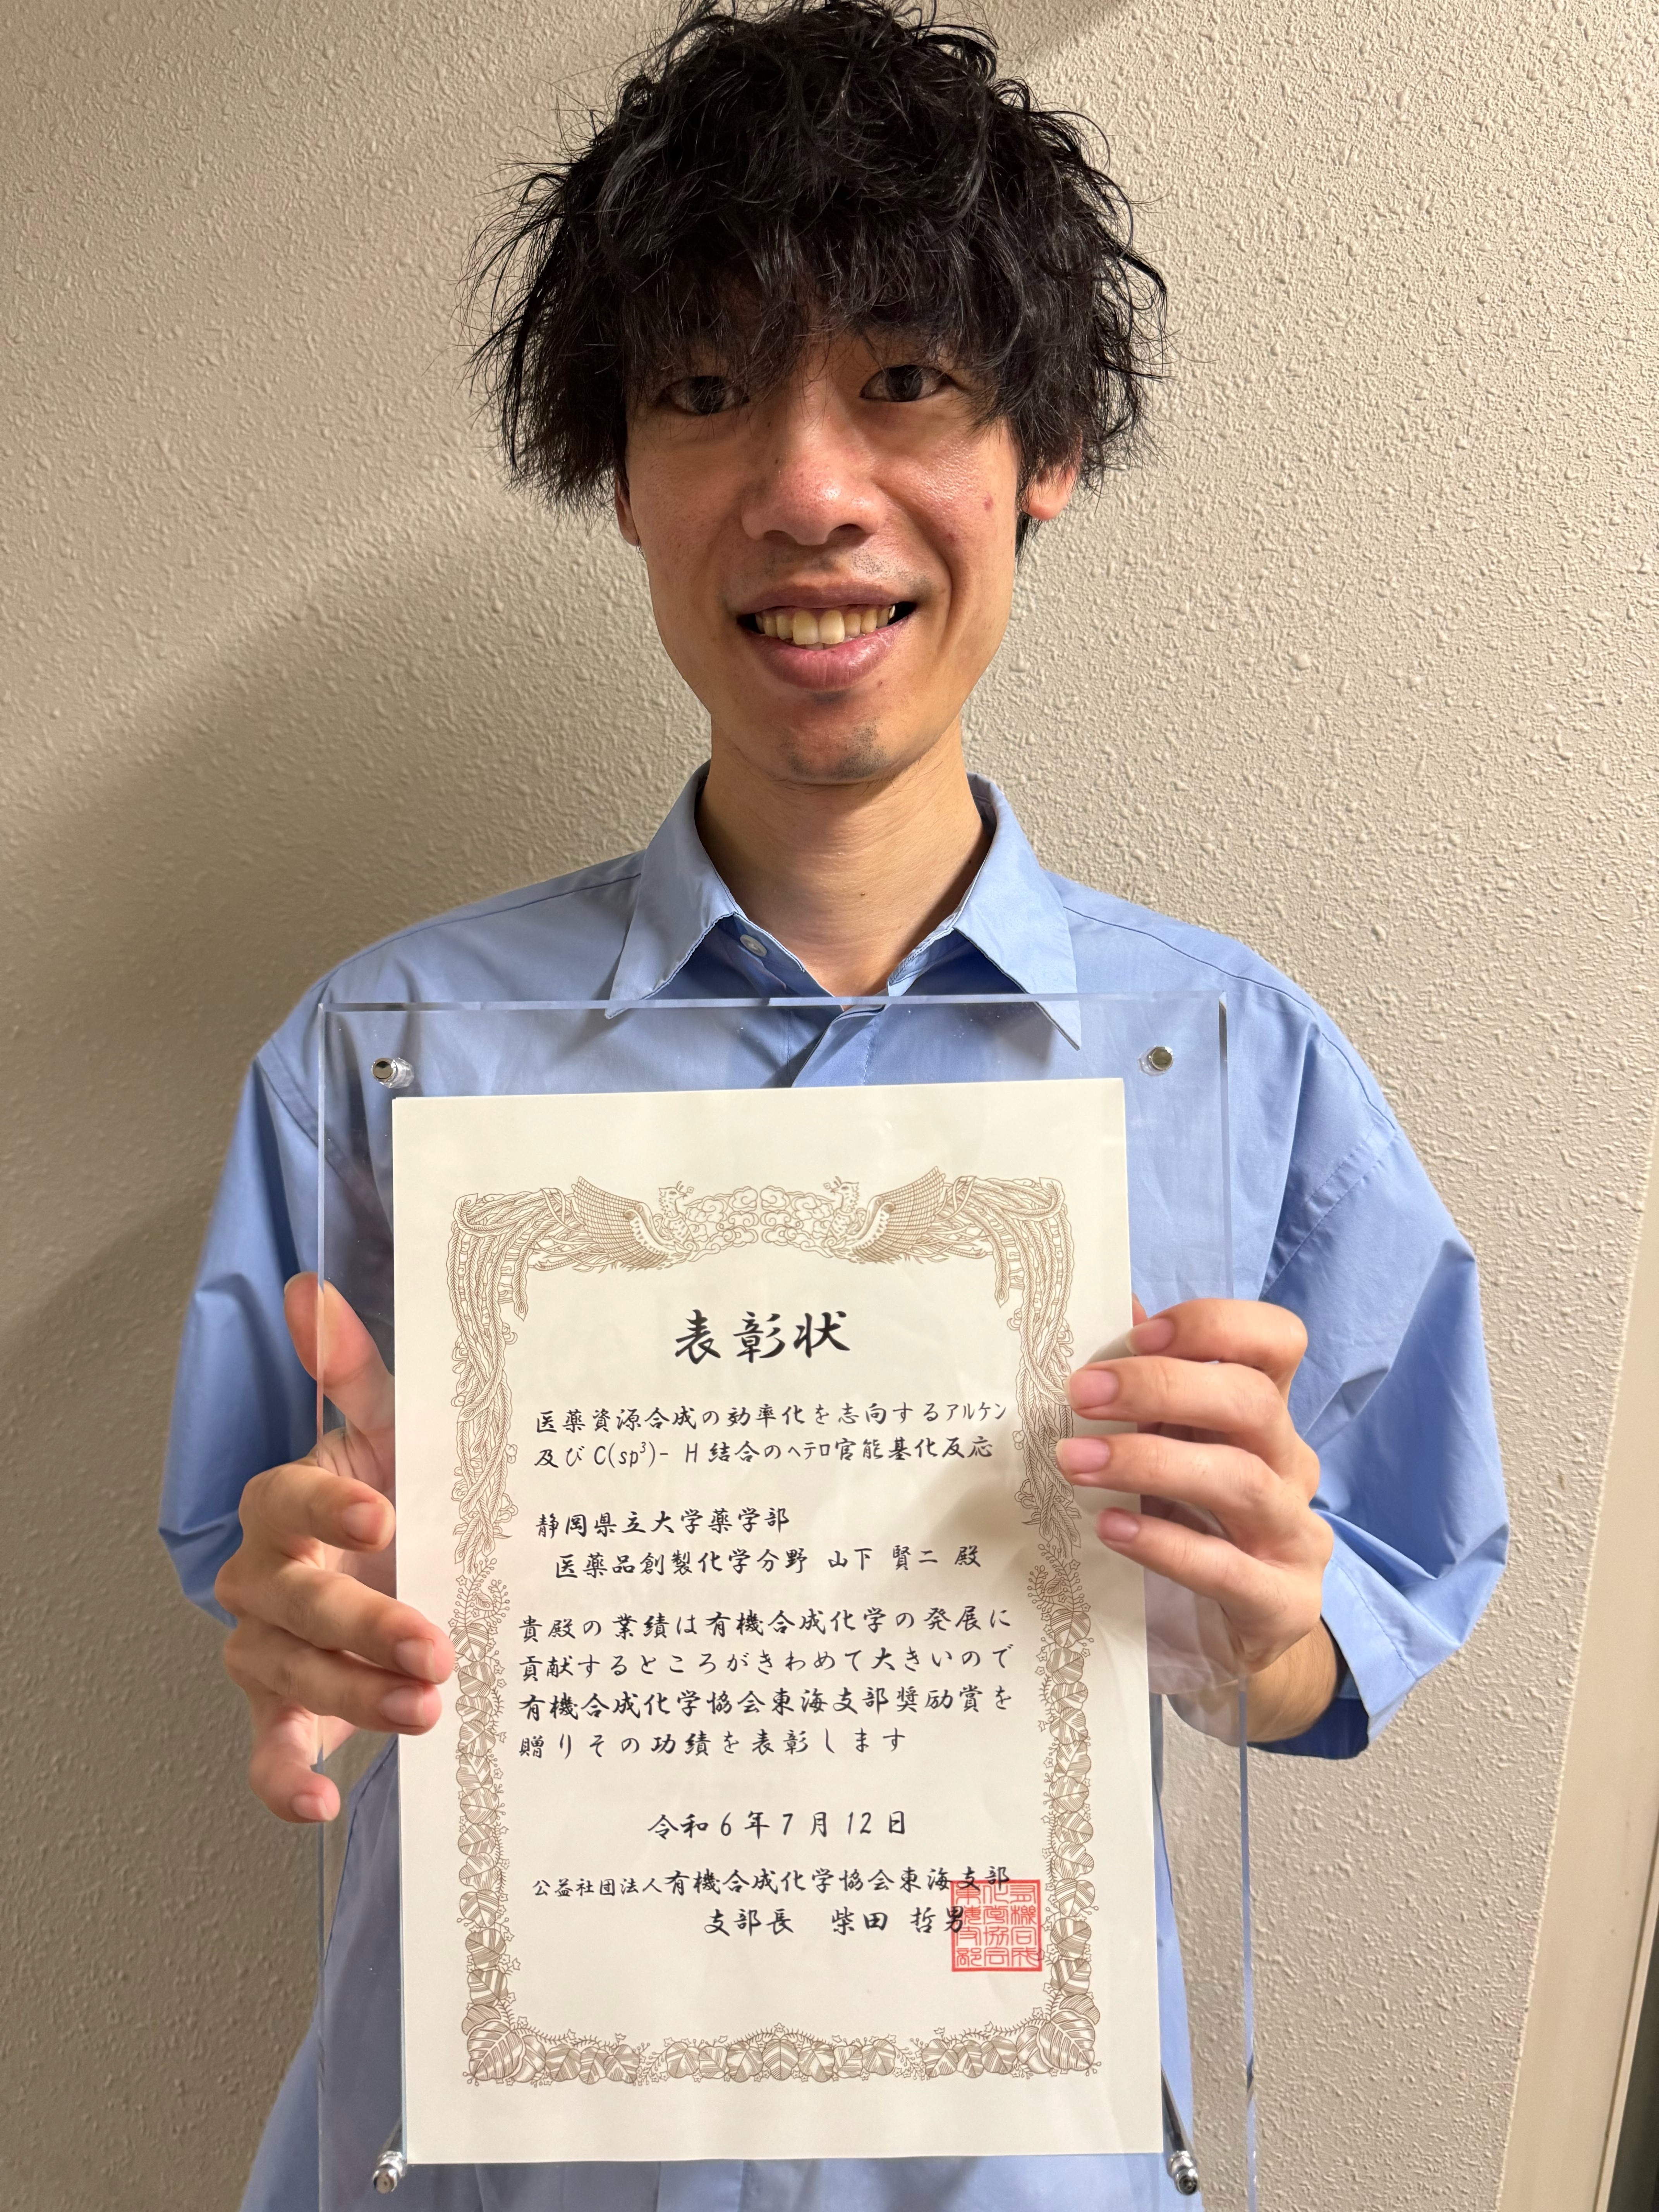 表彰状
医薬資源合成の効率化を志向するアルケン
及びC(sp³)-H結合のヘテロ官能基化反応
静岡県立大学薬学部
医薬品創製化学分野 山下 賢二 殿
貴殿の業績は有機合成化学の発展に
貢献するところがきわめて大きいので
有機合成化学協会東海支部奨励賞を
贈りその功績を表彰します
令和6年7月12日
公益社団法人有機合成化学協会東海支部
支部長 柴田 哲男
有機合成
化学協会
東海支部